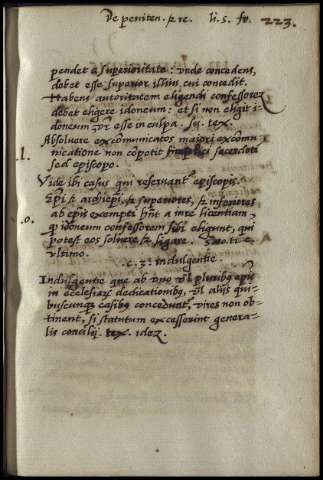 De peniten. & re. li. 5. fo. 223.
pendet a superioritate: unde concedens,
debet esse superior illius, cui concedit.
Habens autoritatem eligendi confessorem
debet eligere idoneum: et si non eligit i-
doneum esse in culpa. tex.
Absoluere excomunicatos maiori excomu-
.l. nicatione non copetit simplici sacerdoti
sed episcopo.
Vide ibi casus qui reseruant episcopis.
.o. Epi & archiepi, & superiores, & inferiores
ab epis exempti hnt a iure licentiam,
q idoneum confessorem sibi eligunt, qui
potest eos soluere & ligare. e.
vltimo.
c. 3: indulgentie.
Indulgentie que ab vno vl pluribq epis
in ecclesiarz dedicationibq, vl alijs qui-
buscunqz casibq concedunt, vires non ob-
tinent, si statutum excesserint genera-
lis concilij. tex. idez.